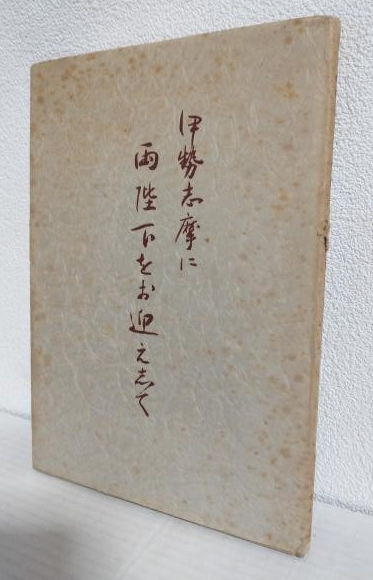 伊勢志摩に
両陛下をお迎え志て